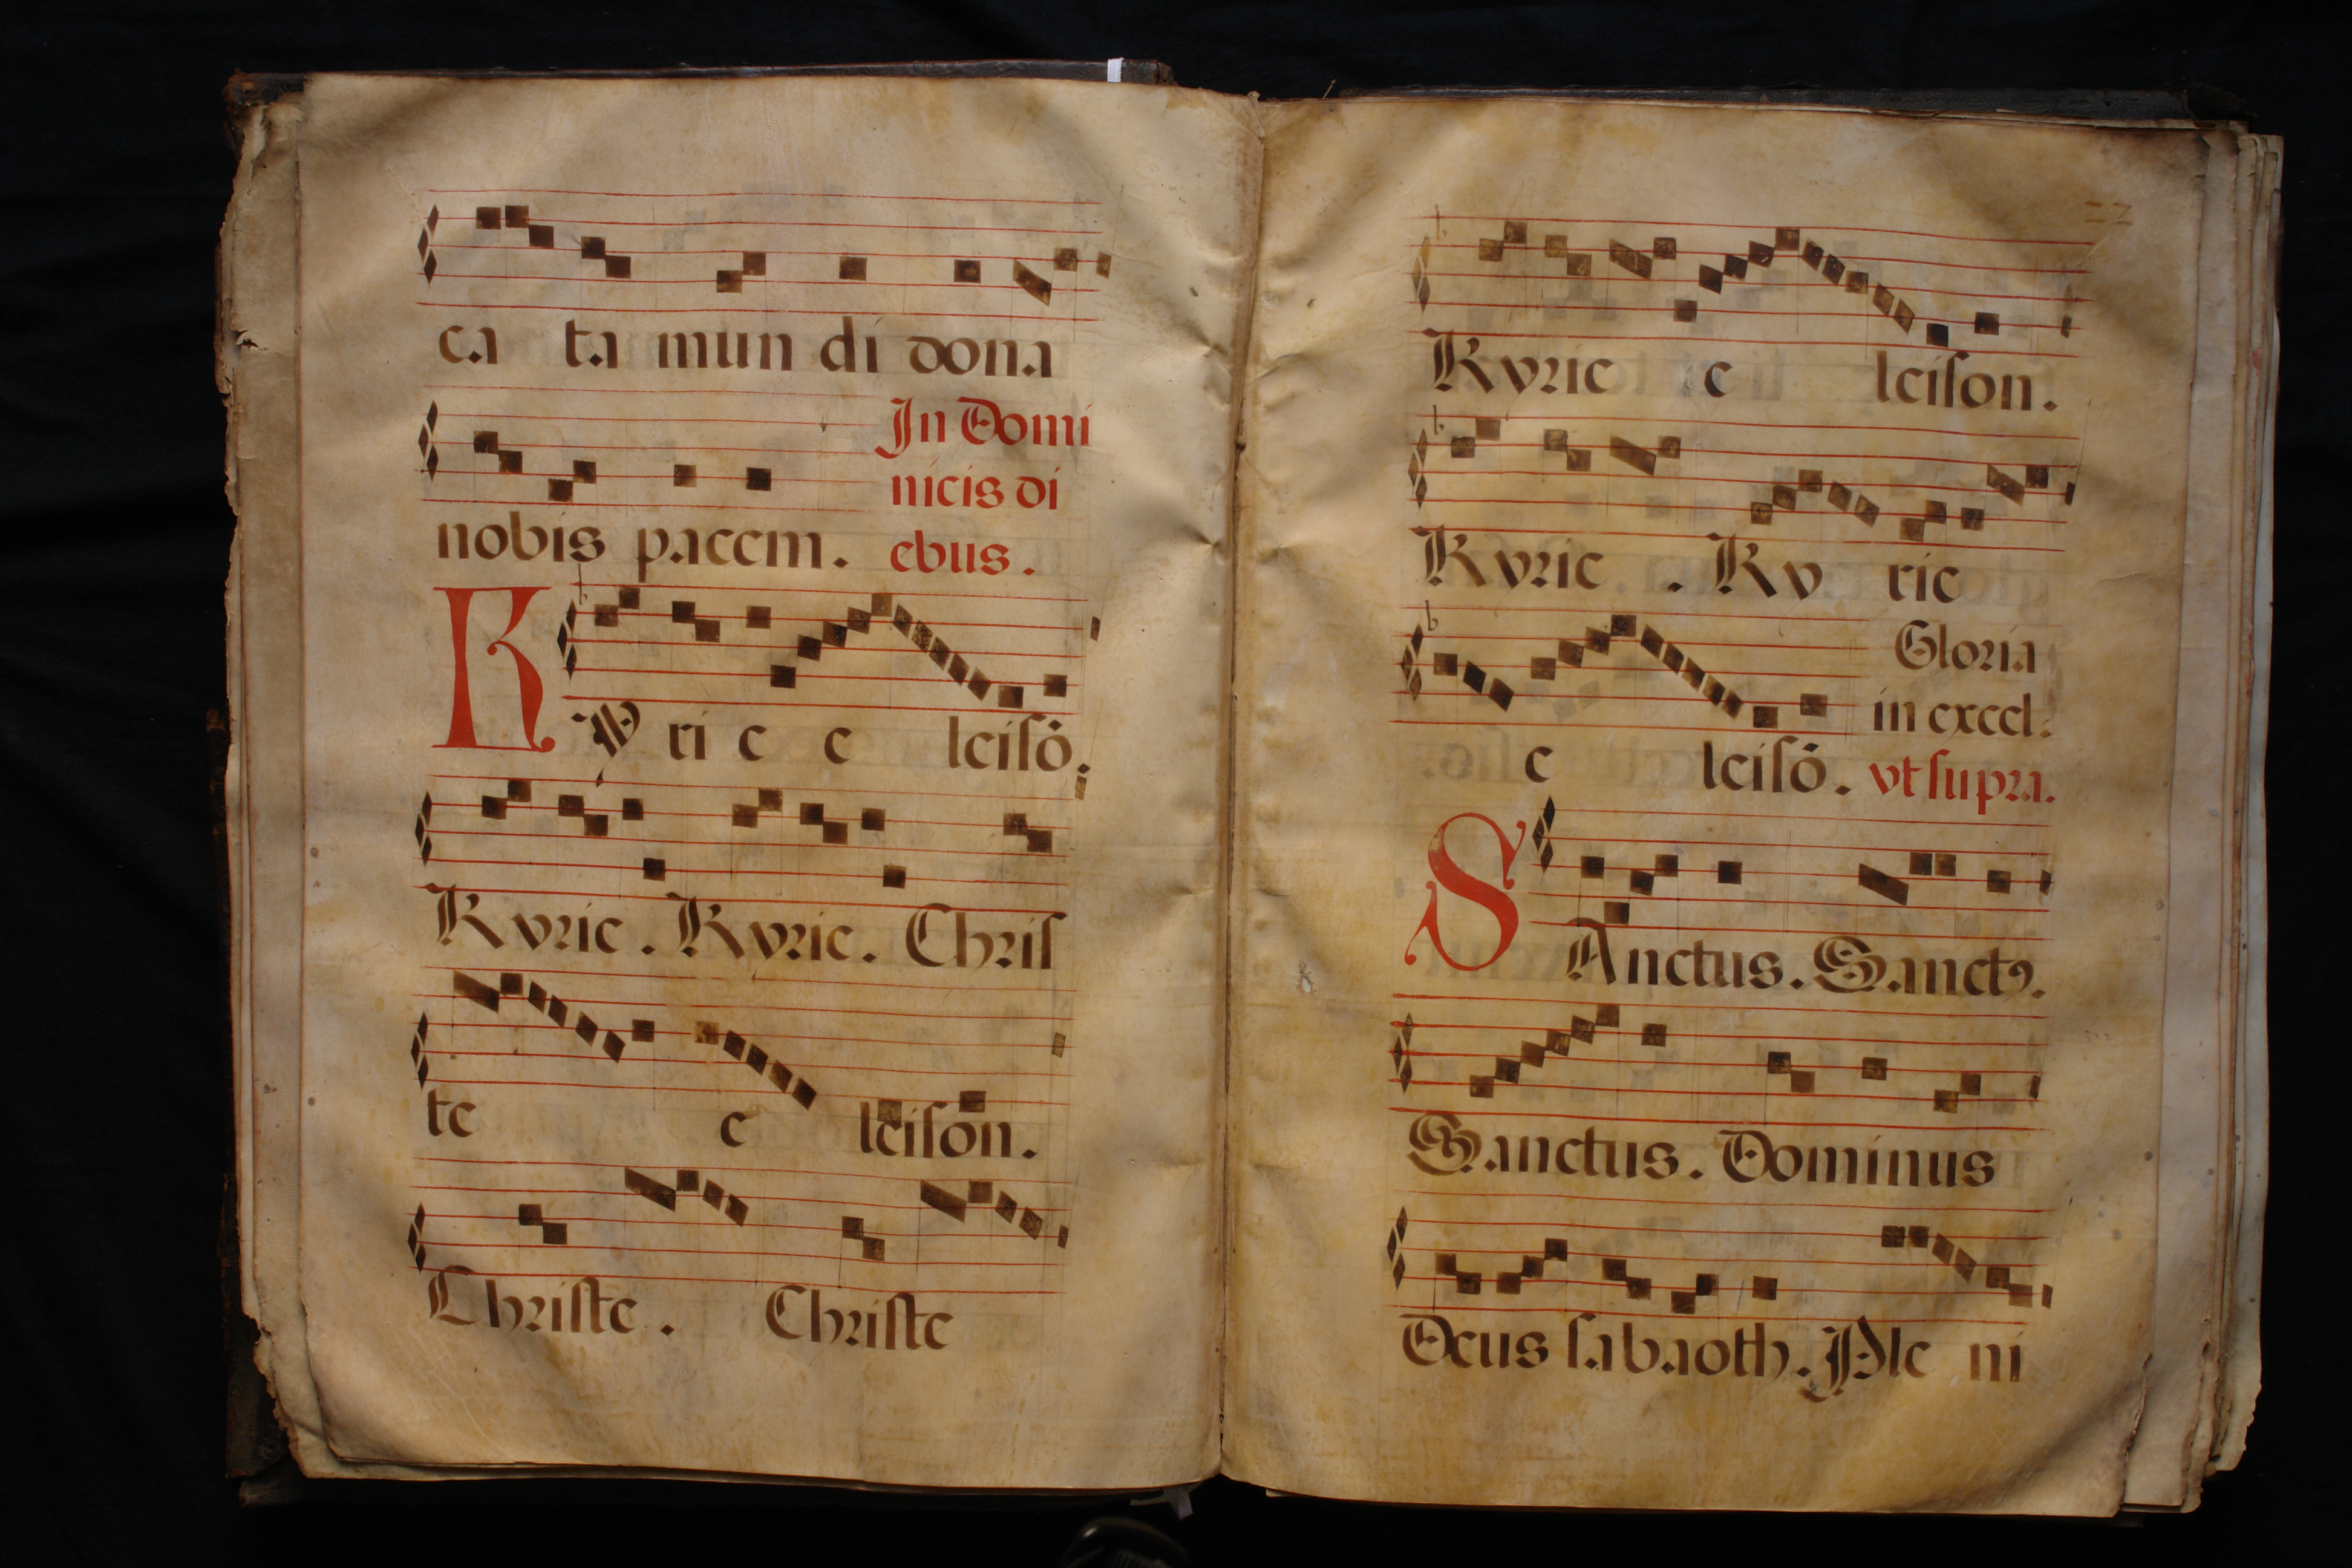 ca ta mun di dona
In Domi
nicis di
nobis pacem. ebus.
KY ri e e leisō.
Kyrie. Kyrie. Chris
te e leison.
Christe. Christe
Kyrie e leison.
Kyrie. Ky rie
Gloria
in excel:
e leisō. vt supra.
SAnctus. Sanctꝰ.
Sanctus. Dominus
Deus sabaoth. Ple ni